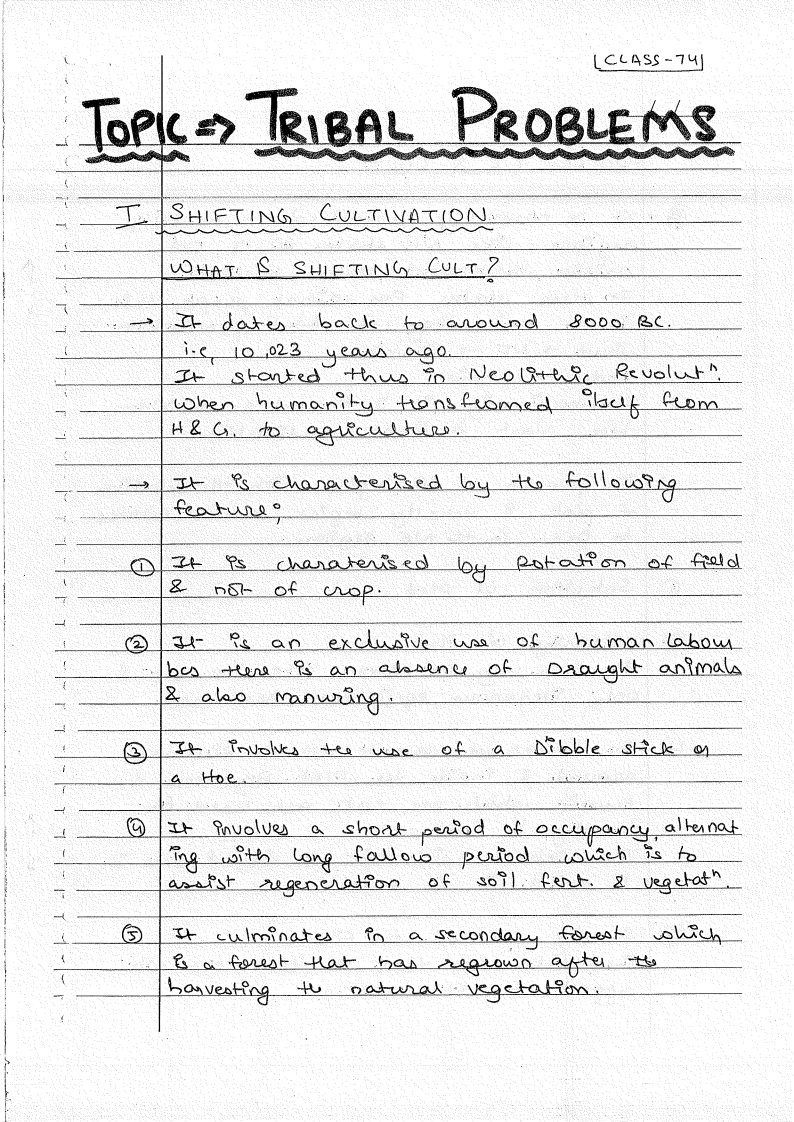 [CLASS-74]
TOPIC => TRIBAL PROBLEMS
I. SHIFTING CULTIVATION.
WHAT IS SHIFTING CULT.?
→ It dates back to around 8000 BC.
i.e, 10,023 years ago.
It started thus in Neolithic Revolutⁿ.
when humanity transfromed itself from
H & G. to agriculture.
→ It is characterised by the following
feature;
① It is charaterised by Rotation of field
& not of crop.
② It is an exclusive use of human labour
bcs there is an absence of Draught animals
& also manuring.
③ It involves the use of a Dibble stick or
a Hoe.
④ It involves a short period of occupancy, alternat
ing with long fallow period which is to
assist regeneration of soil. fert. & vegetatⁿ.
⑤ It culminates in a secondary forest which
is a forest that has regrown after the
harvesting the natural vegetation.